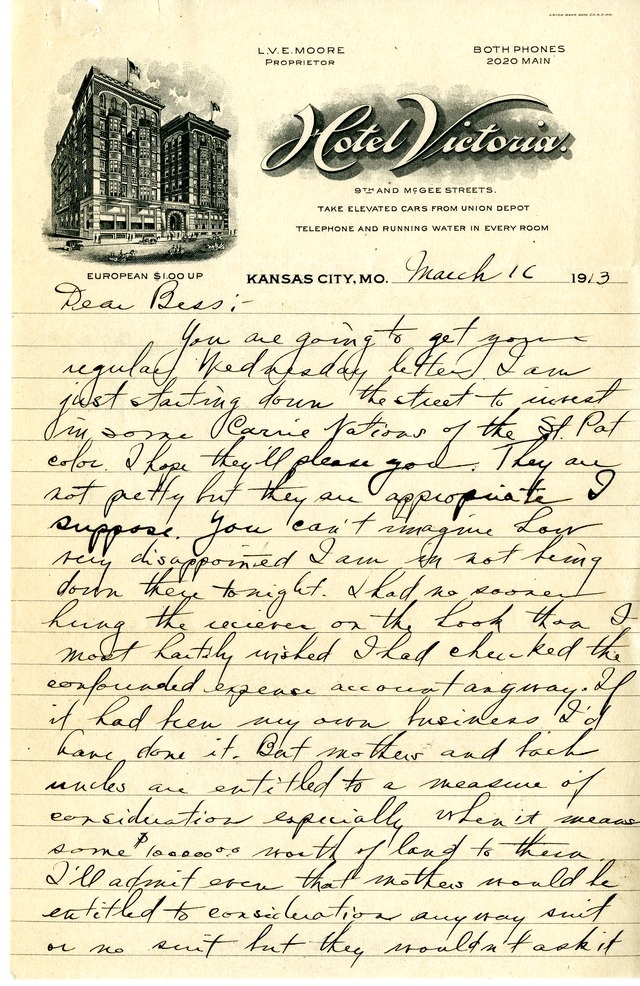 L.V.E. MOORE
PROPRIETOR
BOTH PHONES
2020 MAIN
Hotel Victoria.
9TH AND McGEE STREETS.
TAKE ELEVATED CARS FROM UNION DEPOT
TELEPHONE AND RUNNING WATER IN EVERY ROOM
EUROPEAN $1.00 UP
KANSAS CITY, MO. March 1913
Dear Bess:-
You are going to get your
regular Wednesday letter. I am
just starting down the street to invest
in some Carrie Nations of the St. Pat
color. I hope they'll please you. They are
not pretty but they are appropriate I
suppose. You can't imagine how
very disappointed I am in not being
down there tonight. I had no sooner
hung the reciever on the hook than I
most hartily wished I had chucked the
confounded expense account anyway. If
it had been my own business I'd
have done it. But mothers and bach
uncles are entitled to a measure of
consideration especially when it means
some worth of land to them.
I'll admit even that mothers would be
entitled to consideration anyway suit
or no suit but they wouldn't ask it